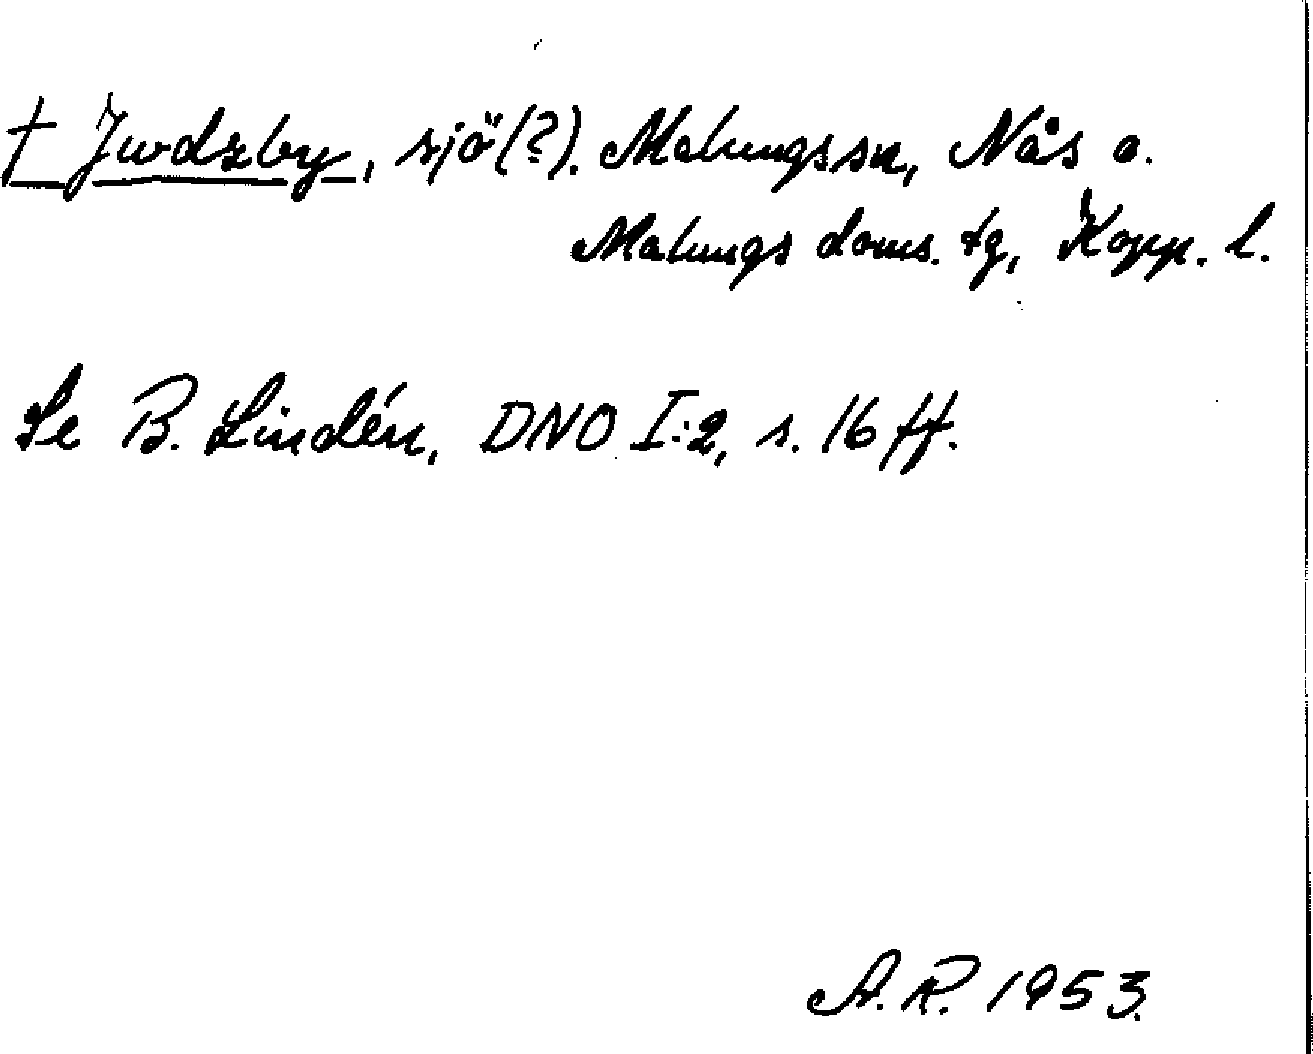 † Jwdzby, sjö(?). Malungs sn, Nås o.
Malungs doms. tg, Kopp. l.
Se B. Lindén, DNO I:2, s. 16 ff.
A.R. 1953.